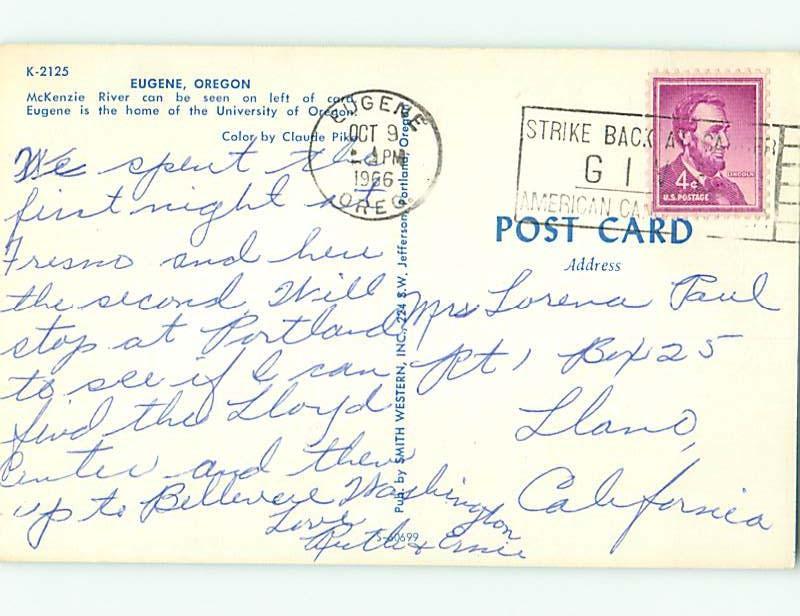 K-2125
EUGENE, OREGON
McKenzie River can be seen on left of card.
Eugene is the home of the University of Oregon.
Color by Claude Pike
We spent the
first night at
Fresno and here
the second. Will
stop at Portland
to see if I can
find the Lloyd
Center and then
up to Bellevere Washington
Love
Ruth & Ernie
S-60699
Pub. by SMITH WESTERN, INC., 224 S.W. Jefferson, Portland, Oregon
EUGENE
OCT 9
PM
1966
OREG.
STRIKE BACK AT
GI
AMERICAN CAN
LINCOLN
4¢
U.S. POSTAGE
POST CARD
Address
Mrs Lorena Paul
Rt 1 Box 25
Llano,
California